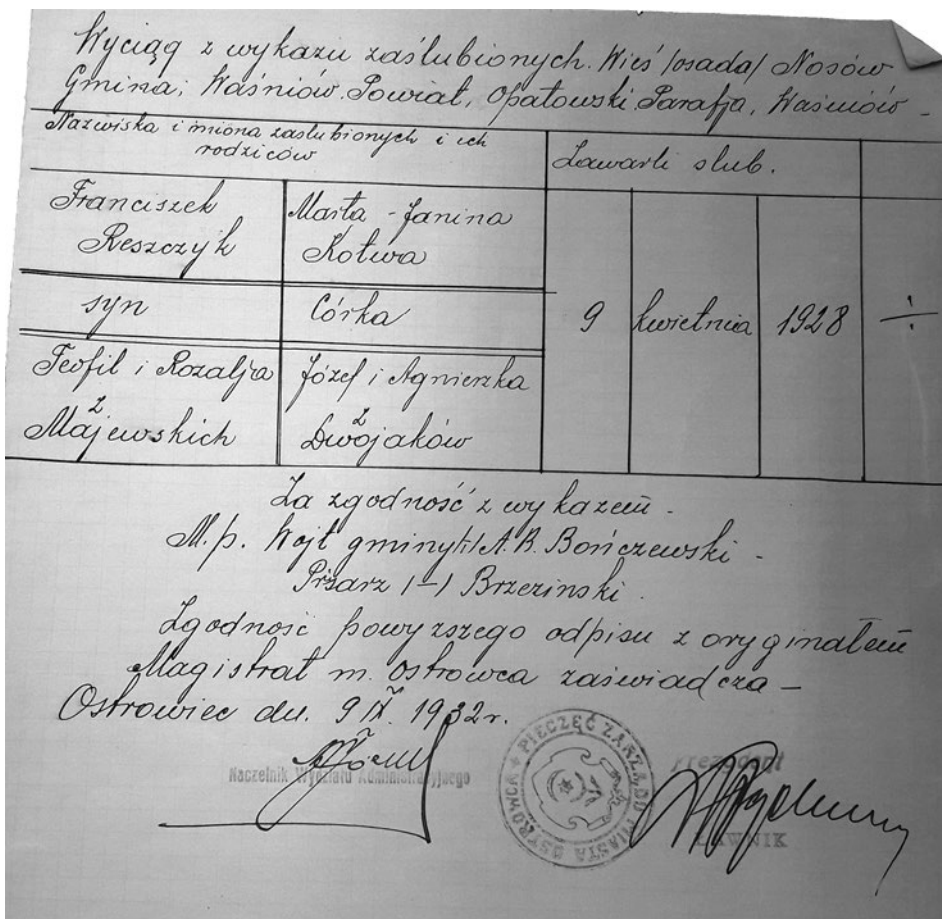 Wyciąg z wykazu zaślubionych. Wieś /osada/ Nosów
Gmina, Waśniów. Powiat, Opatowski. Parafja, Waśniów -
Nazwiska i imiona zaslubionych i ich
rodziców
Zawarli slub.
Franciszek
Reszczyk
Marta - Janina
Kotwa
syn
Córka
9 kwietnia 1928 ÷
Teofil i Rozalja
z
Majewskich
Józef i Agnieszka
z
Dwojaków
Za zgodność z wykazem -
M.p. Wojt gminy /-/ A. B. Bończewski -
Pisarz /-/ Brzezinski.
Zgodność powyzszego odpisu z oryginałem
Magistrat m. Ostrowca zaświadcza -
Ostrowiec dn. 9 IX. 1932 r.
Naczelnik Wydziału Administracyjnego
PIECZĘĆ ZARZĄDU MIASTA OSTROWCA
Prezydent
ŁAWNIK